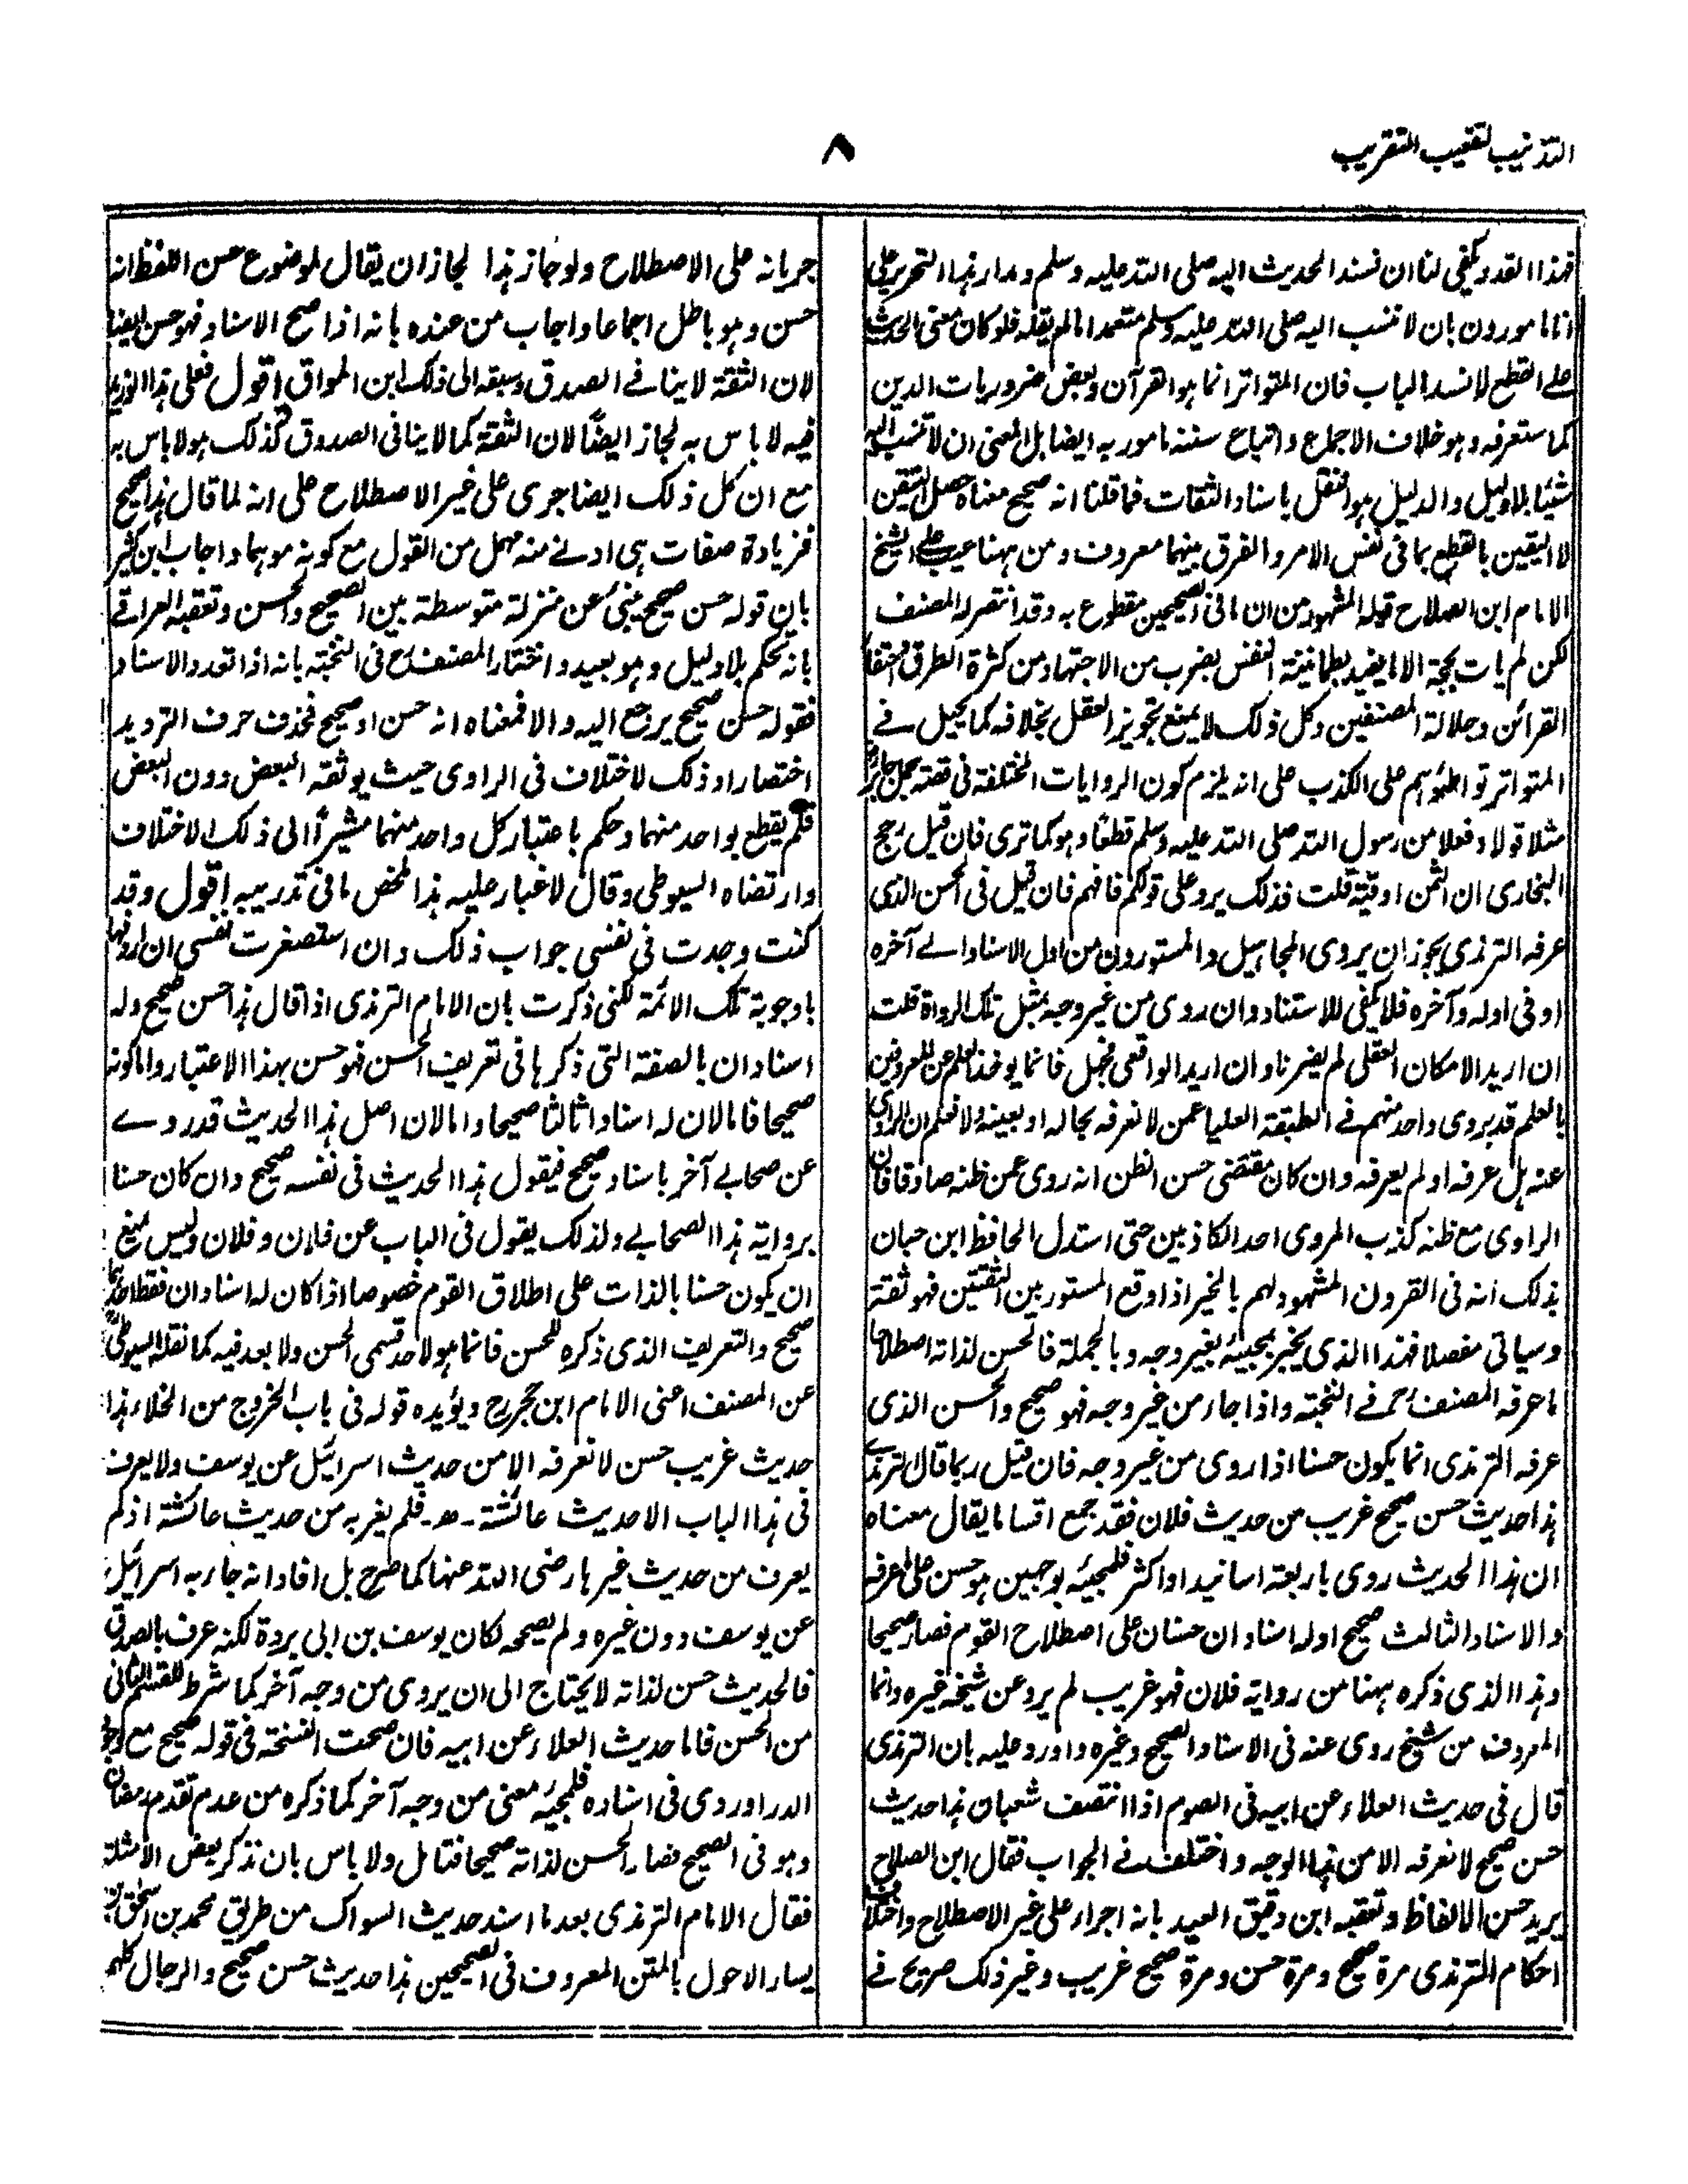 التذنيب لتعقيب التقريب
٨
فهذا القدر يكفي لنا ان نسند الحديث اليه صلى الله عليه وسلم ومدار هذا التحرير على
انا مامورون بان لا ننسب اليه صلى الله عليه وسلم متعمدا ما لم يقله فلو كان معنى الحديث
على القطع لانسد الباب فان المتواتر انما هو القرآن وبعض ضروريات الدين
كما ستعرفه وهو خلاف الاجماع واتباع سننه مامور به ايضا بل المعنى ان لا ننسب اليه
شيئا بلا دليل والدليل هو النقل باسناد الثقات فما قلنا انه صحيح معناه حصل التيقن
لا اليقين بالقطع بما في نفس الامر والفرق بينهما معروف ومن ههنا عيب على الشيخ
الامام ابن الصلاح قوله المشهور من ان ما في الصحيحين مقطوع به وقد انتصر له المصنف
لكن لم يات بحجة الا ما يفيد بطمانينة النفس بضرب من الاجتهاد من كثرة الطرق واحتفاف
القرائن وجلالة المصنفين وكل ذلك لا يمنع تجويز العقل بخلافه كما يحيل في
المتواتر تواطؤهم على الكذب على انه يلزم كون الروايات المختلفة في قصة جمل جابر
مثلا قولا وفعلا من رسول الله صلى الله عليه وسلم قطعا وهو كما ترى فان قيل رجح
البخاري ان الثمن اوقية قلت فذلك يرد على قولكم فافهم فان قيل في الحسن الذي
عرفه الترمذي يجوز ان يروى المجاهيل والمستورون من اول الاسناد الى آخره
او في اوله وآخره فلا يكفي للاستناد وان روي من غير وجه بمثل تلك الرواة قلت
ان اريد الامكان العقلي لم يضرنا وان اريد الواقعي فجهل فانما يوخذ العلم عن المعروفين
بالعلم قد يروي واحد منهم في الطبقة العليا عمن لا نعرفه بحاله او بعينه ولا نعلم ان الراوي
عنه هل عرفه او لم يعرفه وان كان مقتضى حسن الظن انه روى عمن ظنه صادقا فان
الراوي مع ظنه كذب المروي احد الكاذبين حتى استدل الحافظ ابن حبان
بذلك انه في القرون المشهود لهم بالخير اذا وقع المستور بين الثقتين فهو ثقة
وسياتي مفصلا فهذا الذي يخبر بمجيئه بغير وجه وبالجملة فالحسن لذاته اصطلاحا
ما عرفه المصنف رح في النخبة واذا جاء من غير وجه فهو صحيح والحسن الذي
عرفه الترمذي انما يكون حسنا اذا روي من غير وجه فان قيل ربما قال الترمذي
هذا حديث حسن صحيح غريب من حديث فلان فقد جمع اقساما يقال معناه
ان هذا الحديث روي باربعة اسانيد او اكثر فلمجيئه بوجهين هو حسن على ما عرفه
والاسناد الثالث صحيح اوله اسنادان حسنان على اصطلاح القوم فصار صحيحا
وهذا الذي ذكره ههنا من رواية فلان فهو غريب لم يرو عن شيخه غيره وانما
المعروف من شيخ روى عنه في الاسناد الصحيح وغيره واورد عليه بان الترمذي
قال في حديث العلاء عن ابيه في الصوم اذا انتصف شعبان هذا حديث
حسن صحيح لا نعرفه الا من هذا الوجه واختلف في الجواب فقال ابن الصلاح
يريد حسن الالفاظ وتعقبه ابن دقيق العيد بانه اجراء على غير الاصطلاح واختلاف
احكام الترمذي مرة صحيح ومرة حسن ومرة صحيح غريب وغير ذلك صريح في
جريانه على الاصطلاح ولو جاز هذا لجاز ان يقال لموضوع حسن اللفظ انه
حسن وهو باطل اجماعا واجاب من عنده بانه اذا صح الاسناد فهو حسن ايضا
لان الثقة لا ينافي الصدق وسبقه الى ذلك ابن المواق اقول فعلى هذا الذي
فيه لا باس به لجاز ايضًا لان الثقة كما لا ينافي الصدوق كذلك هو لا باس به
مع ان كل ذلك ايضا جرى على غير الاصطلاح على انه لما قال هذا صحيح
فزيادة صفات هي ادنى منه مهمل من القول مع كونه موهما واجاب ابن كثير
بان قوله حسن صحيح منبئ عن منزلة متوسطة بين الصحيح والحسن وتعقبه العراقي
بانه تحكم بلا دليل وهو بعيد واختار المصنف رح في النخبة بانه اذا تعدد الاسناد
فقوله حسن صحيح يرجع اليه والا فمعناه انه حسن او صحيح فحذف حرف الترديد
اختصارا وذلك لاختلاف في الراوي حيث يوثقه البعض دون البعض
فلم يقطع بواحد منهما وحكم باعتبار كل واحد منهما مشيرًا الى ذلك الاختلاف
وارتضاه السيوطي وقال لا غبار عليه هذا ملخص ما في تدريبه اقول وقد
كنت وجدت في نفسي جواب ذلك وان استصغرت نفسي ان اردفها
باجوبة تلك الائمة لكني ذكرت بان الامام الترمذي اذا قال هذا حسن صحيح وله
اسنادان بالصفة التي ذكرها في تعريف الحسن فهو حسن بهذا الاعتبار واما كونه
صحيحا فاما لان له اسنادا ثالثا صحيحا واما لان اصل هذا الحديث قد روي
عن صحابي آخر باسناد صحيح فيقول هذا الحديث في نفسه صحيح وان كان حسنا
برواية هذا الصحابي ولذلك يقول في الباب عن فلان وفلان وليس يمنع
ان يكون حسنا بالذات على اطلاق القوم خصوصا اذا كان له اسنادان فقط احدهما
صحيح والتعريف الذي ذكره للحسن فانما هو لاحد قسمي الحسن ولا بعد فيه كما نقله السيوطي
عن المصنف اعني الامام ابن حجر رح ويؤيده قوله في باب الخروج من الخلاء هذا
حديث غريب حسن لا نعرفه الا من حديث اسرائيل عن يوسف ولا يعرف
في هذا الباب الا حديث عائشة - ھ - فلم يغربه من حديث عائشة اذ لم
يعرف من حديث غيرها رضي الله عنها كما صرح بل افاد انه جاء به اسرائيل
عن يوسف دون غيره ولم يصححه لكان يوسف بن ابي بردة لكنه عرف بالصدق
فالحديث حسن لذاته لا يحتاج الى ان يروى من وجه آخر كما شرط للقسم الثاني
من الحسن فاما حديث العلاء عن ابيه فان صحت النسخة في قوله صحيح مع وجود
الدراوردي في اسناده فلمجيئه معنى من وجه آخر كما ذكره من عدم تقدم رمضان
وهو في الصحيح فصار الحسن لذاته صحيحا فتامل ولا باس بان نذكر بعض الامثلة
فقال الامام الترمذي بعد ما اسند حديث السواك من طريق محمد بن اسحق بن
يسار الاحول بالمتن المعروف في الصحيحين هذا حديث حسن صحيح والرجال كلهم